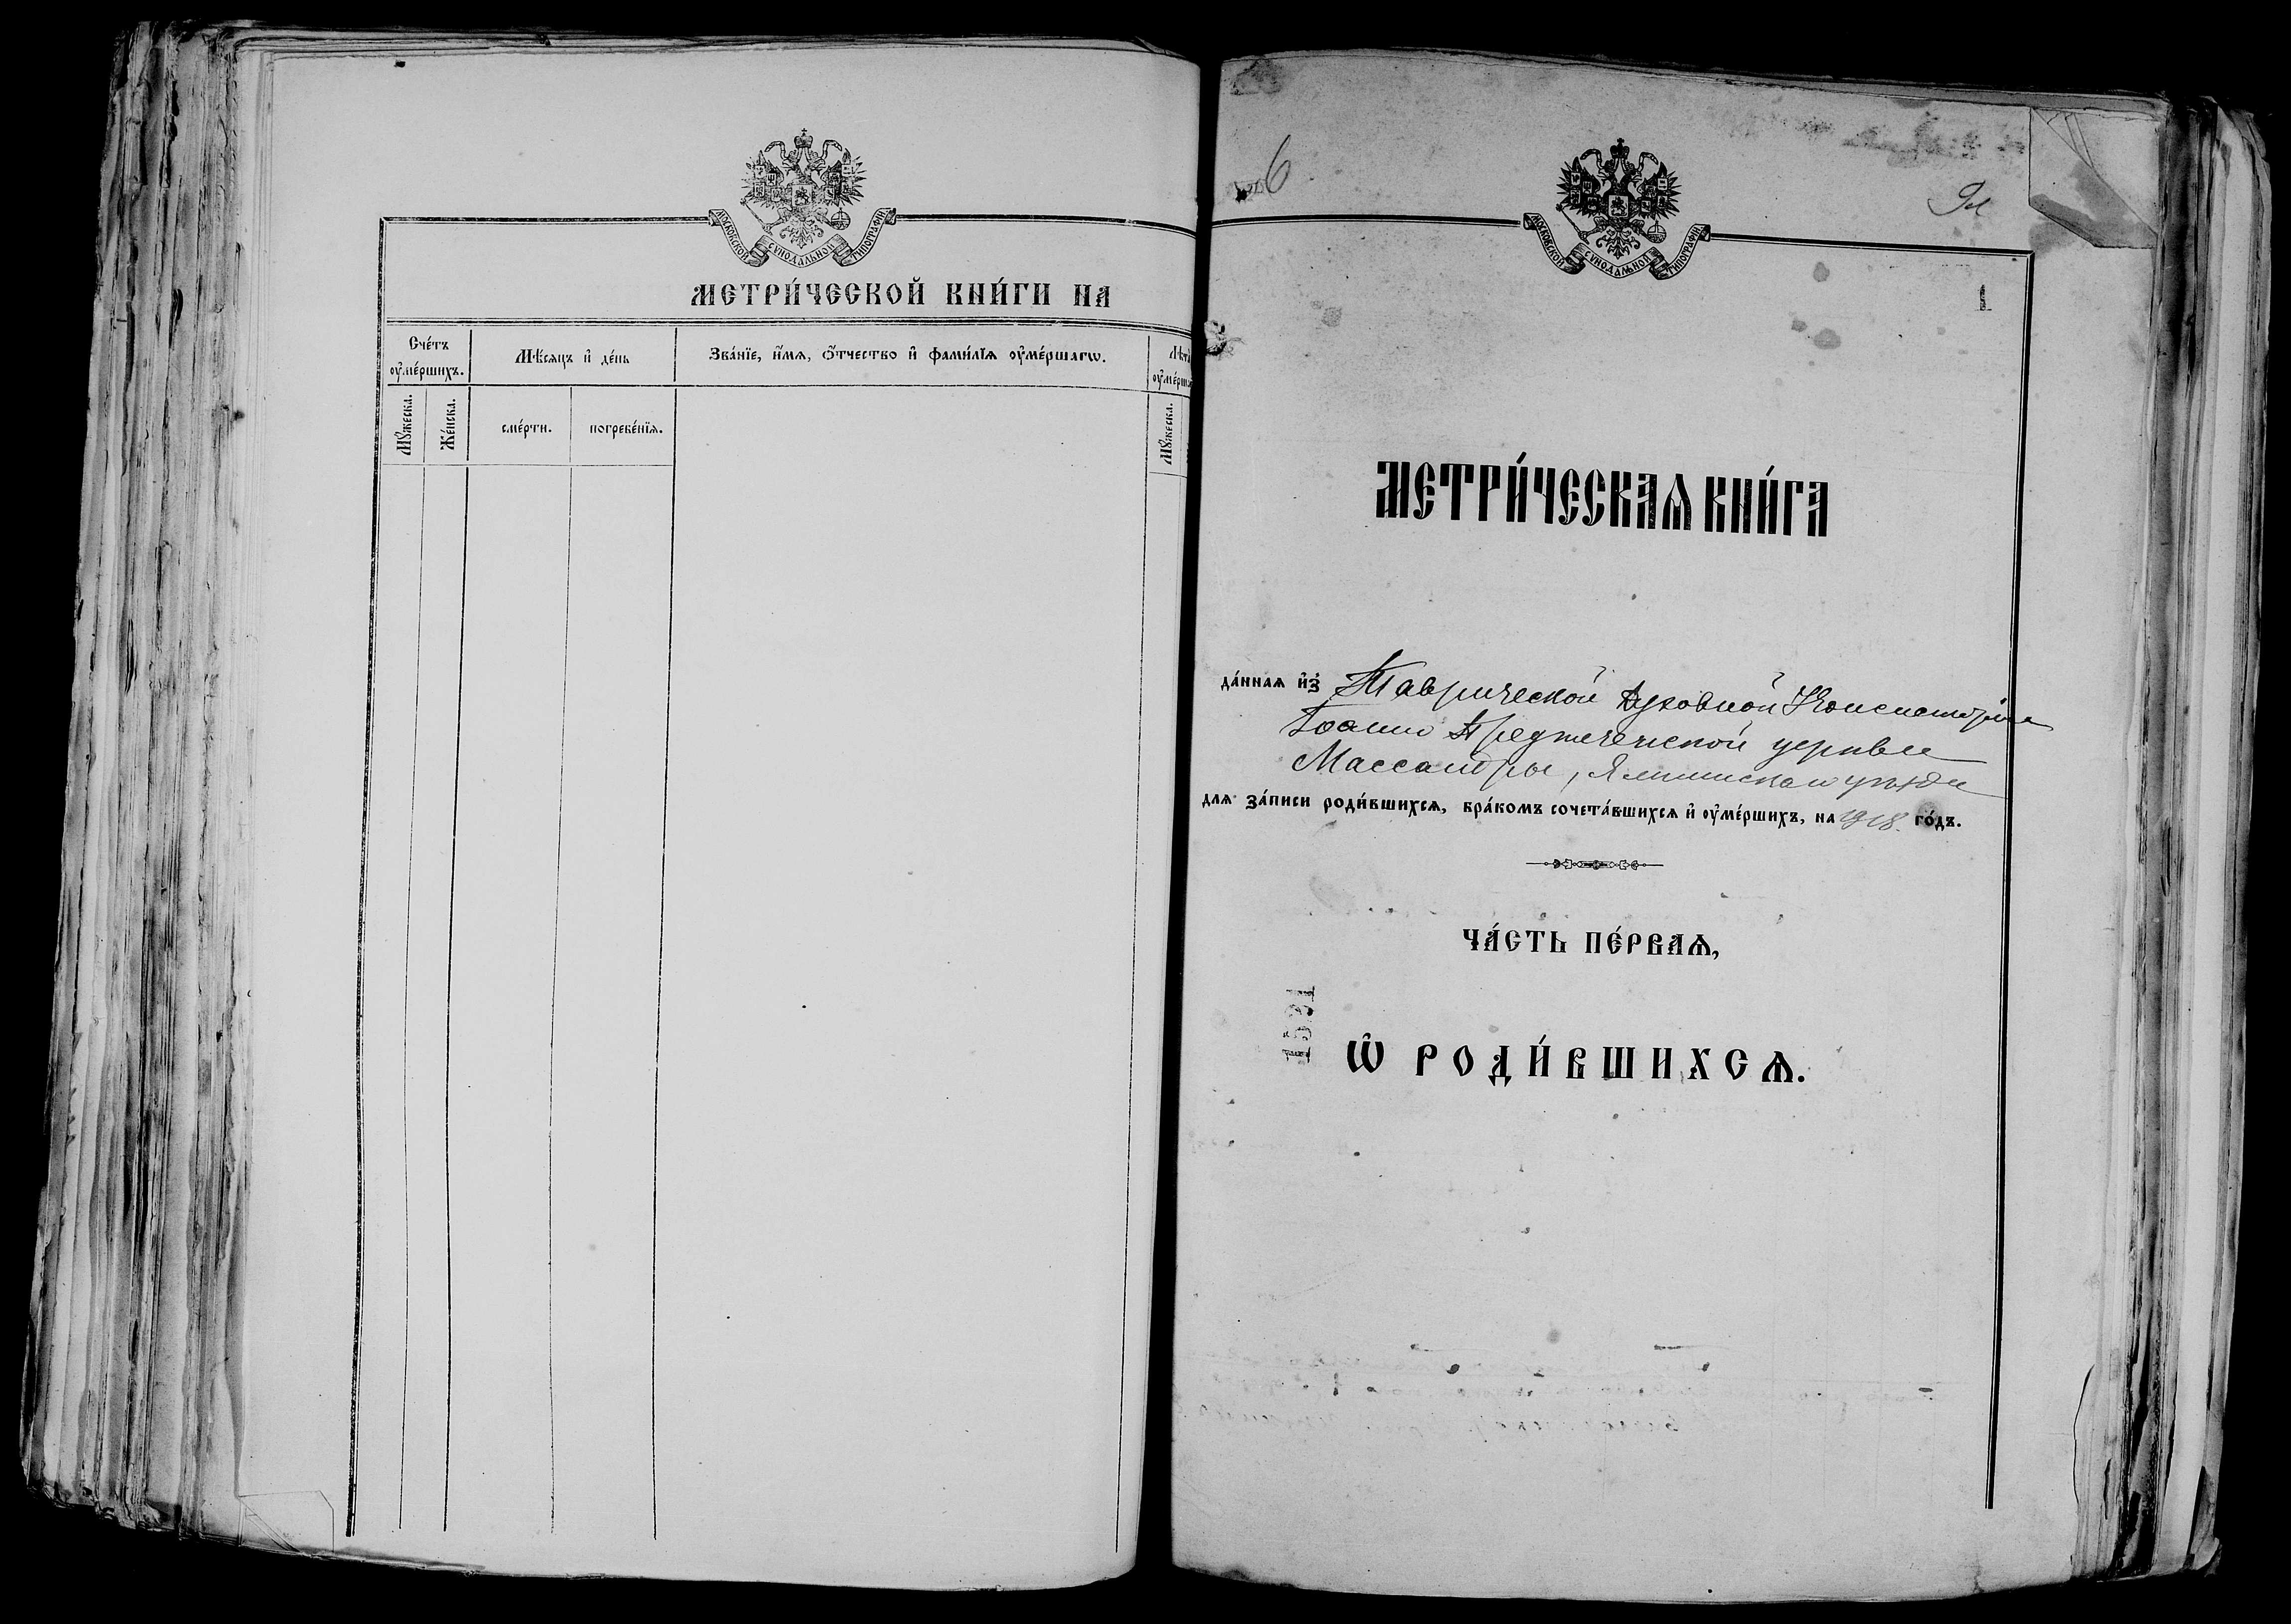 МОСКОВСКОЙ СѴНОДАЛЬНОЙ ТИПОГРАФІИ
МЕТРИ́ЧЕСКОЙ КНИ́ГИ НА
Сче́тъ ᲂу҆ме́ршихъ.
Мѣ́сяцъ и҆ де́нь
Зва́нїе, и҆́мя, ѻ҆́тчество и҆ фами́лїя ᲂу҆ме́ршагѡ.
Мꙋ́жеска.
Же́нска.
сме́рти.
погребе́нїя.
Мꙋ́жеска.
6
МОСКОВСКОЙ СѴНОДАЛЬНОЙ ТИПОГРАФІИ
1
МЕТРИ́ЧЕСКАѦ КНИ́ГА
да́нная и҆з̾ Таврической Духовной Консисторіи
Іоанно Предтеченской церкви
Массандры, Ялтинскаго уѣзда
для за́писи роди́вшихся, бра́комъ сочета́вшихся и҆ ᲂу҆ме́ршихъ, на 1918 го́дъ.
ЧА́СТЬ ПЕ́РВАѦ,
1521
Ѡ҆ РОДИ́ВШИХСѦ.